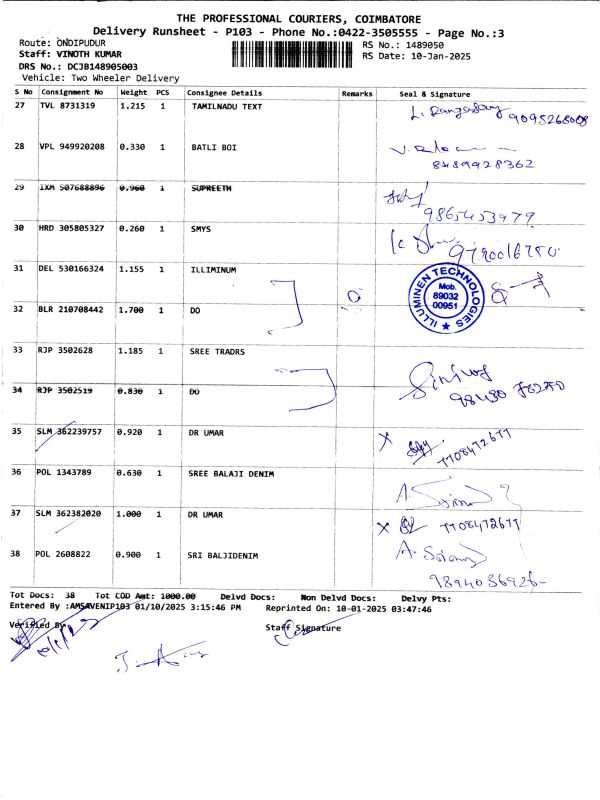 THE PROFESSIONAL COURIERS, COIMBATORE
Delivery Runsheet - P103 - Phone No.:0422-3505555 - Page No.:3
Route: ONDIPUDUR RS No.: 1489050
Staff: VINOTH KUMAR RS Date: 10-Jan-2025
DRS No.: DCJB148905003
Vehicle: Two Wheeler Delivery
S No Consignment No Weight PCS Consignee Details Remarks Seal & Signature
27 TVL 8731319 1.215 1 TAMILNADU TEXT
9095268008
28 VPL 949920208 0.330 1 BATLI BOI
8489928362
29 IXM 507688896 0.960 1 SUPREETH
9865453979
30 HRD 305805327 0.260 1 SMYS
31 DEL 530166324 1.155 1 ILLIMINUM
ILLUMINEN TECHNOLOGIES
Mob.
89032
00951
32 BLR 210708442 1.700 1 DO
33 RJP 3502628 1.185 1 SREE TRADRS
34 RJP 3502519 0.830 1 DO
35 SLM 362239757 0.920 1 DR UMAR
7708472677
36 POL 1343789 0.630 1 SREE BALAJI DENIM
37 SLM 362382020 1.000 1 DR UMAR
7708472677
38 POL 2608822 0.900 1 SRI BALJIDENIM
9894036926
Tot Docs: 38 Tot COD Amt: 1000.00 Delvd Docs: Non Delvd Docs: Delvy Pts:
Entered By :AMSAVENIP103 01/10/2025 3:15:46 PM Reprinted On: 10-01-2025 03:47:46
Verified By Staff Signature